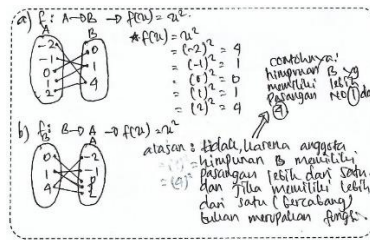 a) f: A→B → f(x) = x².
A B
-2
-1
0
1
2
0
1
4
* f(x) = x²
= (-2)² = 4
= (-1)² = 1
= (0)² = 0
= (1)² = 1
= (2)² = 4
contohnya:
himpunan B yg
memiliki lebih
pasangan NO ① da
④
b) f: B→A → f(x) = x²
B A
0
1
4
-2
-1
0
1
2
alasan: tidak, karena anggota
himpunan B memiliki
pasangan lebih dari satu
dan jika memiliki lebih
dari satu (bercabang)
bukan merupakan fungsi